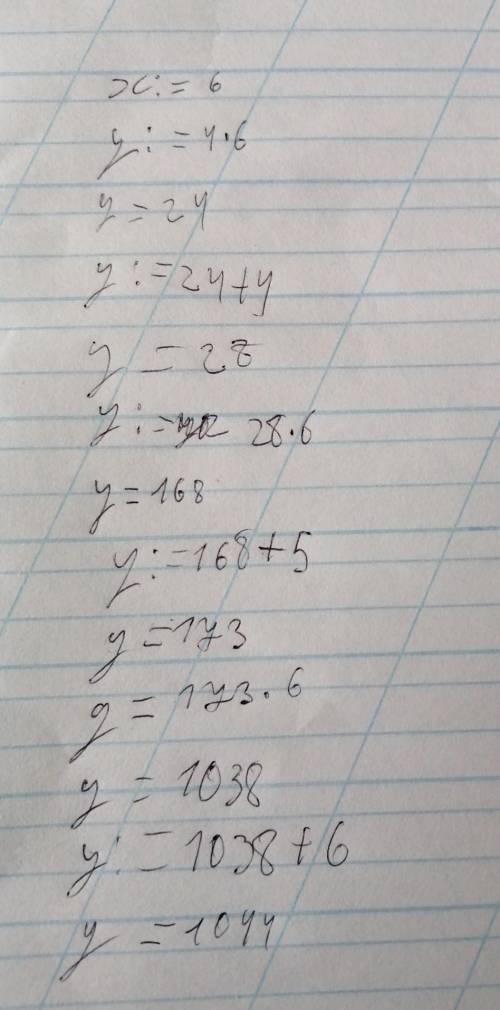 x := 6
y := 4·6
y = 24
y := 24+4
y = 28
y := 28·6
y = 168
y := 168+5
y = 173
y = 173·6
y = 1038
y := 1038+6
y = 1044